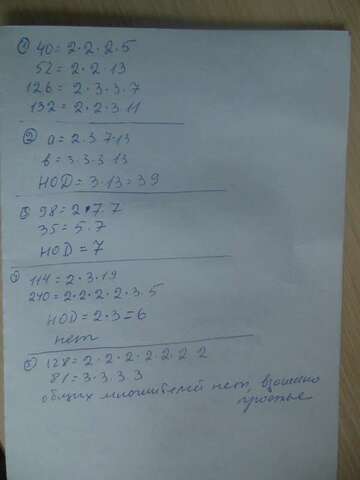 ① 40 = 2·2·2·5
52 = 2·2·13
126 = 2·3·3·7
132 = 2·2·3·11
② a = 2·3·7·13
в = 3·3·3·13
НОД = 3·13 = 39
3 98 = 2·7·7
35 = 5·7
НОД = 7
114 = 2·3·19
240 = 2·2·2·2·3·5
НОД = 2·3 = 6
нет
⑤ 128 = 2·2·2·2·2·2·2
81 = 3·3·3·3
общих множителей нет, взаимно
простые